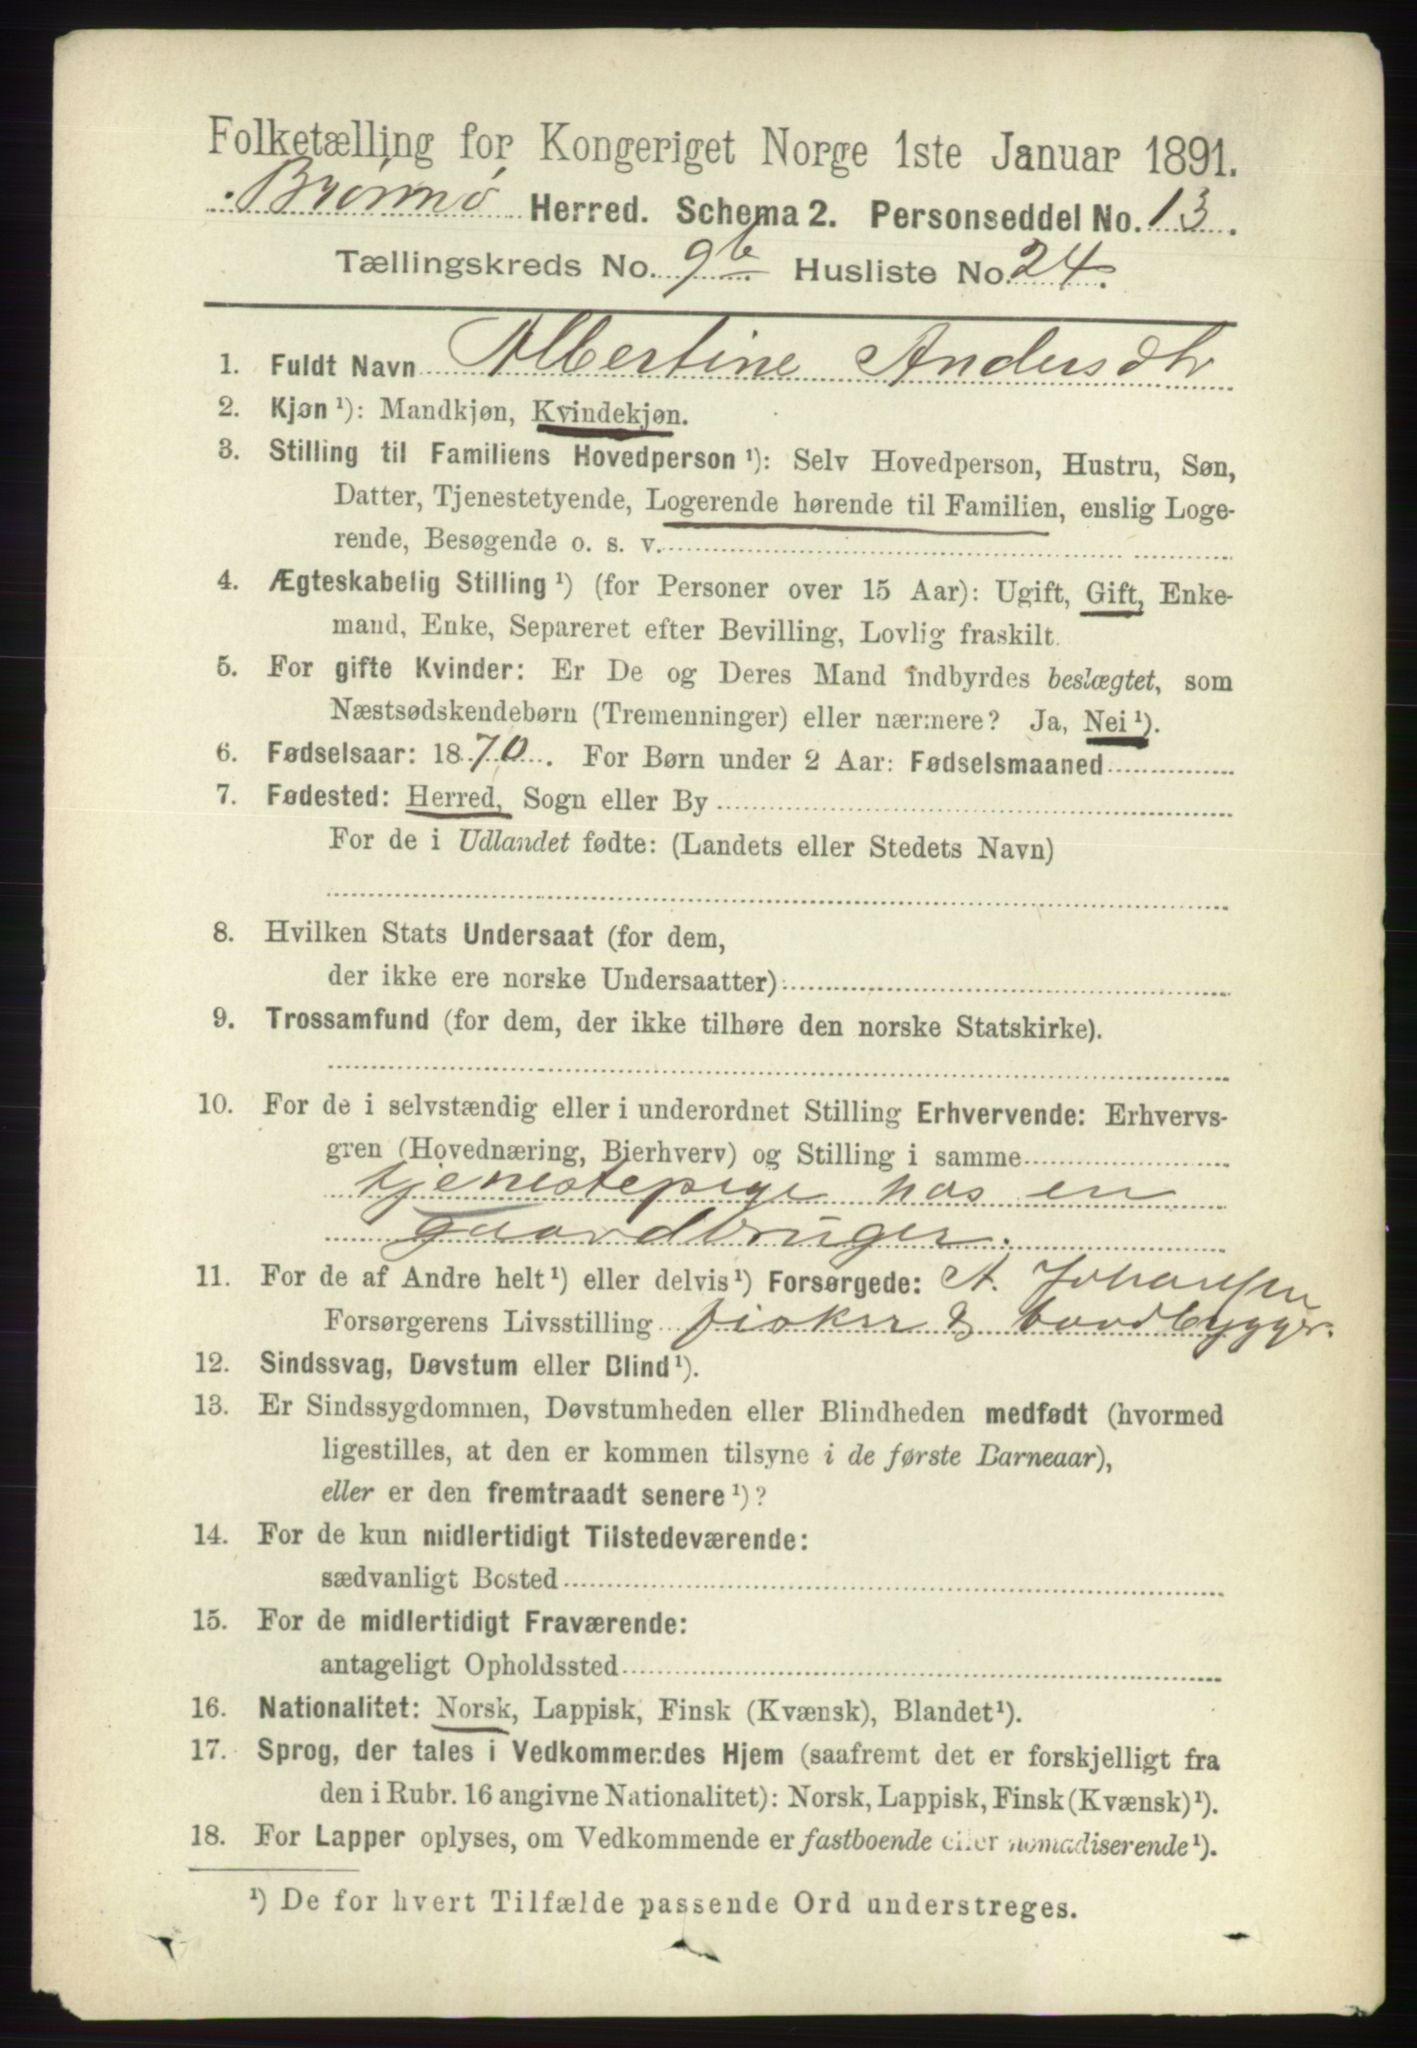 Folketælling for Kongeriget Norge 1ste Januar 1891.
Brønnø Herred. Schema 2. Personseddel No. 13.
Tællingskreds No. 9b Husliste No. 24.
1. Fuldt Navn Albertine Andersdtr
2. Kjøn ¹): Mandkjøn, Kvindekjøn.
3. Stilling til Familiens Hovedperson ¹): Selv Hovedperson, Hustru, Søn,
Datter, Tjenestetyende, Logerende hørende til Familien, enslig Loge-
rende, Besøgende o. s. v.
4. Ægteskabelig Stilling ¹) (for Personer over 15 Aar): Ugift, Gift, Enke-
mand, Enke, Separeret efter Bevilling, Lovlig fraskilt.
5. For gifte Kvinder: Er De og Deres Mand indbyrdes beslægtet, som
Næstsødskendebørn (Tremenninger) eller nærmere? Ja, Nei ¹).
6. Fødselsaar: 1870. For Børn under 2 Aar: Fødselsmaaned
7. Fødested: Herred, Sogn eller By
For de i Udlandet fødte: (Landets eller Stedets Navn)
8. Hvilken Stats Undersaat (for dem,
der ikke ere norske Undersaatter):
9. Trossamfund (for dem, der ikke tilhøre den norske Statskirke).
10. For de i selvstændig eller i underordnet Stilling Erhvervende: Erhvervs-
gren (Hovednæring, Bierhverv) og Stilling i samme
tjenestepige hos en
gaardbruger.
11. For de af Andre helt ¹) eller delvis ¹) Forsørgede: A. Johansen
Forsørgerens Livsstilling fisker & baadbygger.
12. Sindssvag, Døvstum eller Blind ¹).
13. Er Sindssygdommen, Døvstumheden eller Blindheden medfødt (hvormed
ligestilles, at den er kommen tilsyne i de første Barneaar),
eller er den fremtraadt senere ¹)?
14. For de kun midlertidigt Tilstedeværende:
sædvanligt Bosted
15. For de midlertidigt Fraværende:
antageligt Opholdssted
16. Nationalitet: Norsk, Lappisk, Finsk (Kvænsk), Blandet ¹).
17. Sprog, der tales i Vedkommendes Hjem (saafremt det er forskjelligt fra
den i Rubr. 16 angivne Nationalitet): Norsk, Lappisk, Finsk (Kvænsk) ¹).
18. For Lapper oplyses, om Vedkommende er fastboende eller nomadiserende ¹).
¹) De for hvert Tilfælde passende Ord understreges.